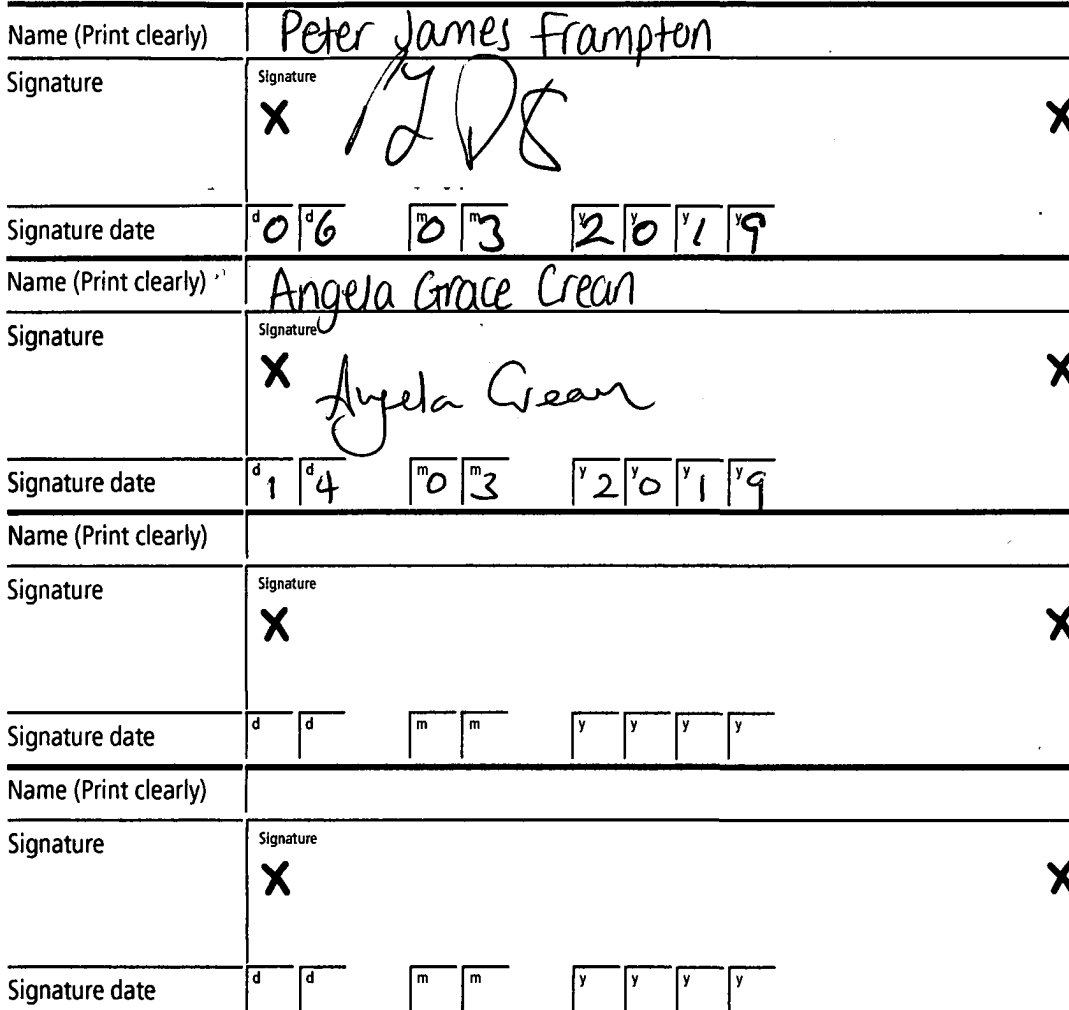 Name (Print clearly) Peter James Frampton
Signature Signature
X X
Signature date d0 d6 m0 m3 y2 y0 y1 y9
Name (Print clearly) Angela Grace Crean
Signature Signature
X Angela Crean X
Signature date d1 d4 m0 m3 y2 y0 y1 y9
Name (Print clearly)
Signature Signature
X X
Signature date d d m m y y y y
Name (Print clearly)
Signature Signature
X X
Signature date d d m m y y y y